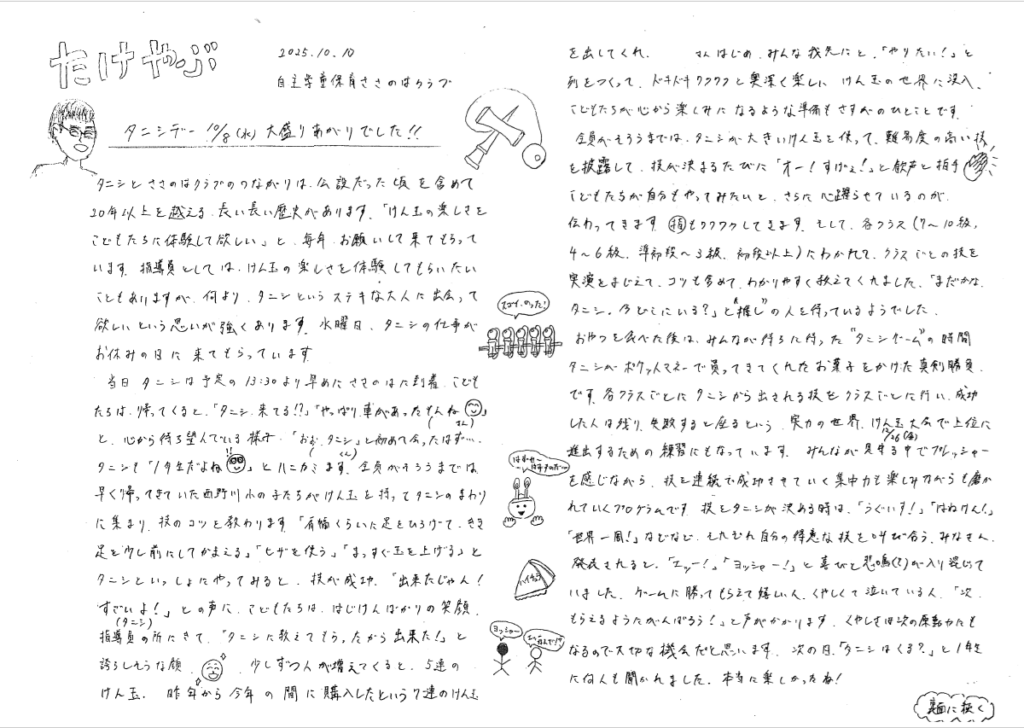 たけやぶ
2025.10.10
自主学童保育ささのはクラブ
タニシデー 10/8(水) 大盛りあがりでした!!
タニシとささのはクラブのつながりは、公設だった頃を含めて
20年以上を越える長い長い歴史があります。「けん玉の楽しさを
こどもたちに体験して欲しい」と、毎年、お願いして来てもらって
います。指導員としては、けん玉の楽しさを体験してもらいたい
こともありますが、何より、タニシというステキな大人に出会って
欲しいという思いが強くあります。水曜日、タニシの仕事が
お休みの日に来てもらっています。
当日タニシは予定の13:30より早めにささのはに到着。こども
たちは、帰ってくると、「タニシ、来てる!?」「やっぱり、車があったもんね
(さん)
と、心から待ち望んでいる様子。「おお、タニシ」と初めて会ったはず…。
(くん)
タニシも「1年生だよね」とハニカミます。全員がそろうまでは
早く帰ってきていた西野川小の子たちがけん玉を持ってタニシのまわり
に集まり、技のコツを教わります。「肩幅くらいに足をひろげて、きき
足を少し前にしてかまえる」「ヒザを使う」「まっすぐ玉を上げる」と
タニシといっしょにやってみると、技が成功、「出来たじゃん!
すごいよ!」との声に、こどもたちは、はじけんばかりの笑顔。
(タニシ)
指導員の所にきて、「タニシに教えてもらったから出来た!」と
誇らしそうな顔 少しずつ人が増えてくると、5連の
けん玉、昨年から今年の間に購入したという7連のけん玉
を出してくれ、 さんはじめ、みんな我先にと、「やりたい!」と
列をつくって、ドキドキワクワクと奥深く楽しいけん玉の世界に没入。
こどもたちが心から楽しみになるような準備もさすがのひとことです。
全員がそろうまでは、タニシが大きいけん玉を使って、難易度の高い技
を披露して、技が決まるたびに「オー!すげぇ!」と歓声と拍手
こどもたちが自分もやってみたいと、さらに心躍らせているのが
伝わってきます。指もワクワクしてきます。そして、各クラス(7〜10級、
4〜6級、準初段〜3級、初段以上)にわかれて、クラスごとの技を
実演をまじえて、コツも含めて、わかりやすく教えてくれました。「まだかな、
タニシ。今どこにいる?」と"推し"の人を待っているようでした。
おやつを食べた後は、みんなが待ちに待った"タニシゲーム"の時間
タニシがポケットマネーで買ってきてくれたお菓子をかけた真剣勝負
です。各クラスごとにタニシから出される技をクラスごとに行い、成功
した人は残り、失敗すると座るという、実力の世界。けん玉大会で上位に
進出するための練習にもなっています。みんなが見守る中でプレッシャー
を感じながら、技を連続で成功させていく集中力も楽しみながらも磨か
れていくプログラムです。技をタニシが決める時は、「うぐいす!」「はねけん!」
「世界一周!」などなど、それぞれ自分の得意な技を叫び合うみなさん。
発表されると、「エッー!」「ヨッシャー!」と喜びと悲鳴(?)が入り混じって
いました。ゲームに勝ってもらえて嬉しい人、くやしくて泣いている人、「次、
もらえるようにがんばろう!」と声がかかります。くやしさは次の原動力にも
なるので大切な機会だと思います。次の日、「タニシはくる?」と1年生
に何人も聞かれました。本当に楽しかったね!
裏に続く
ヨッシャー